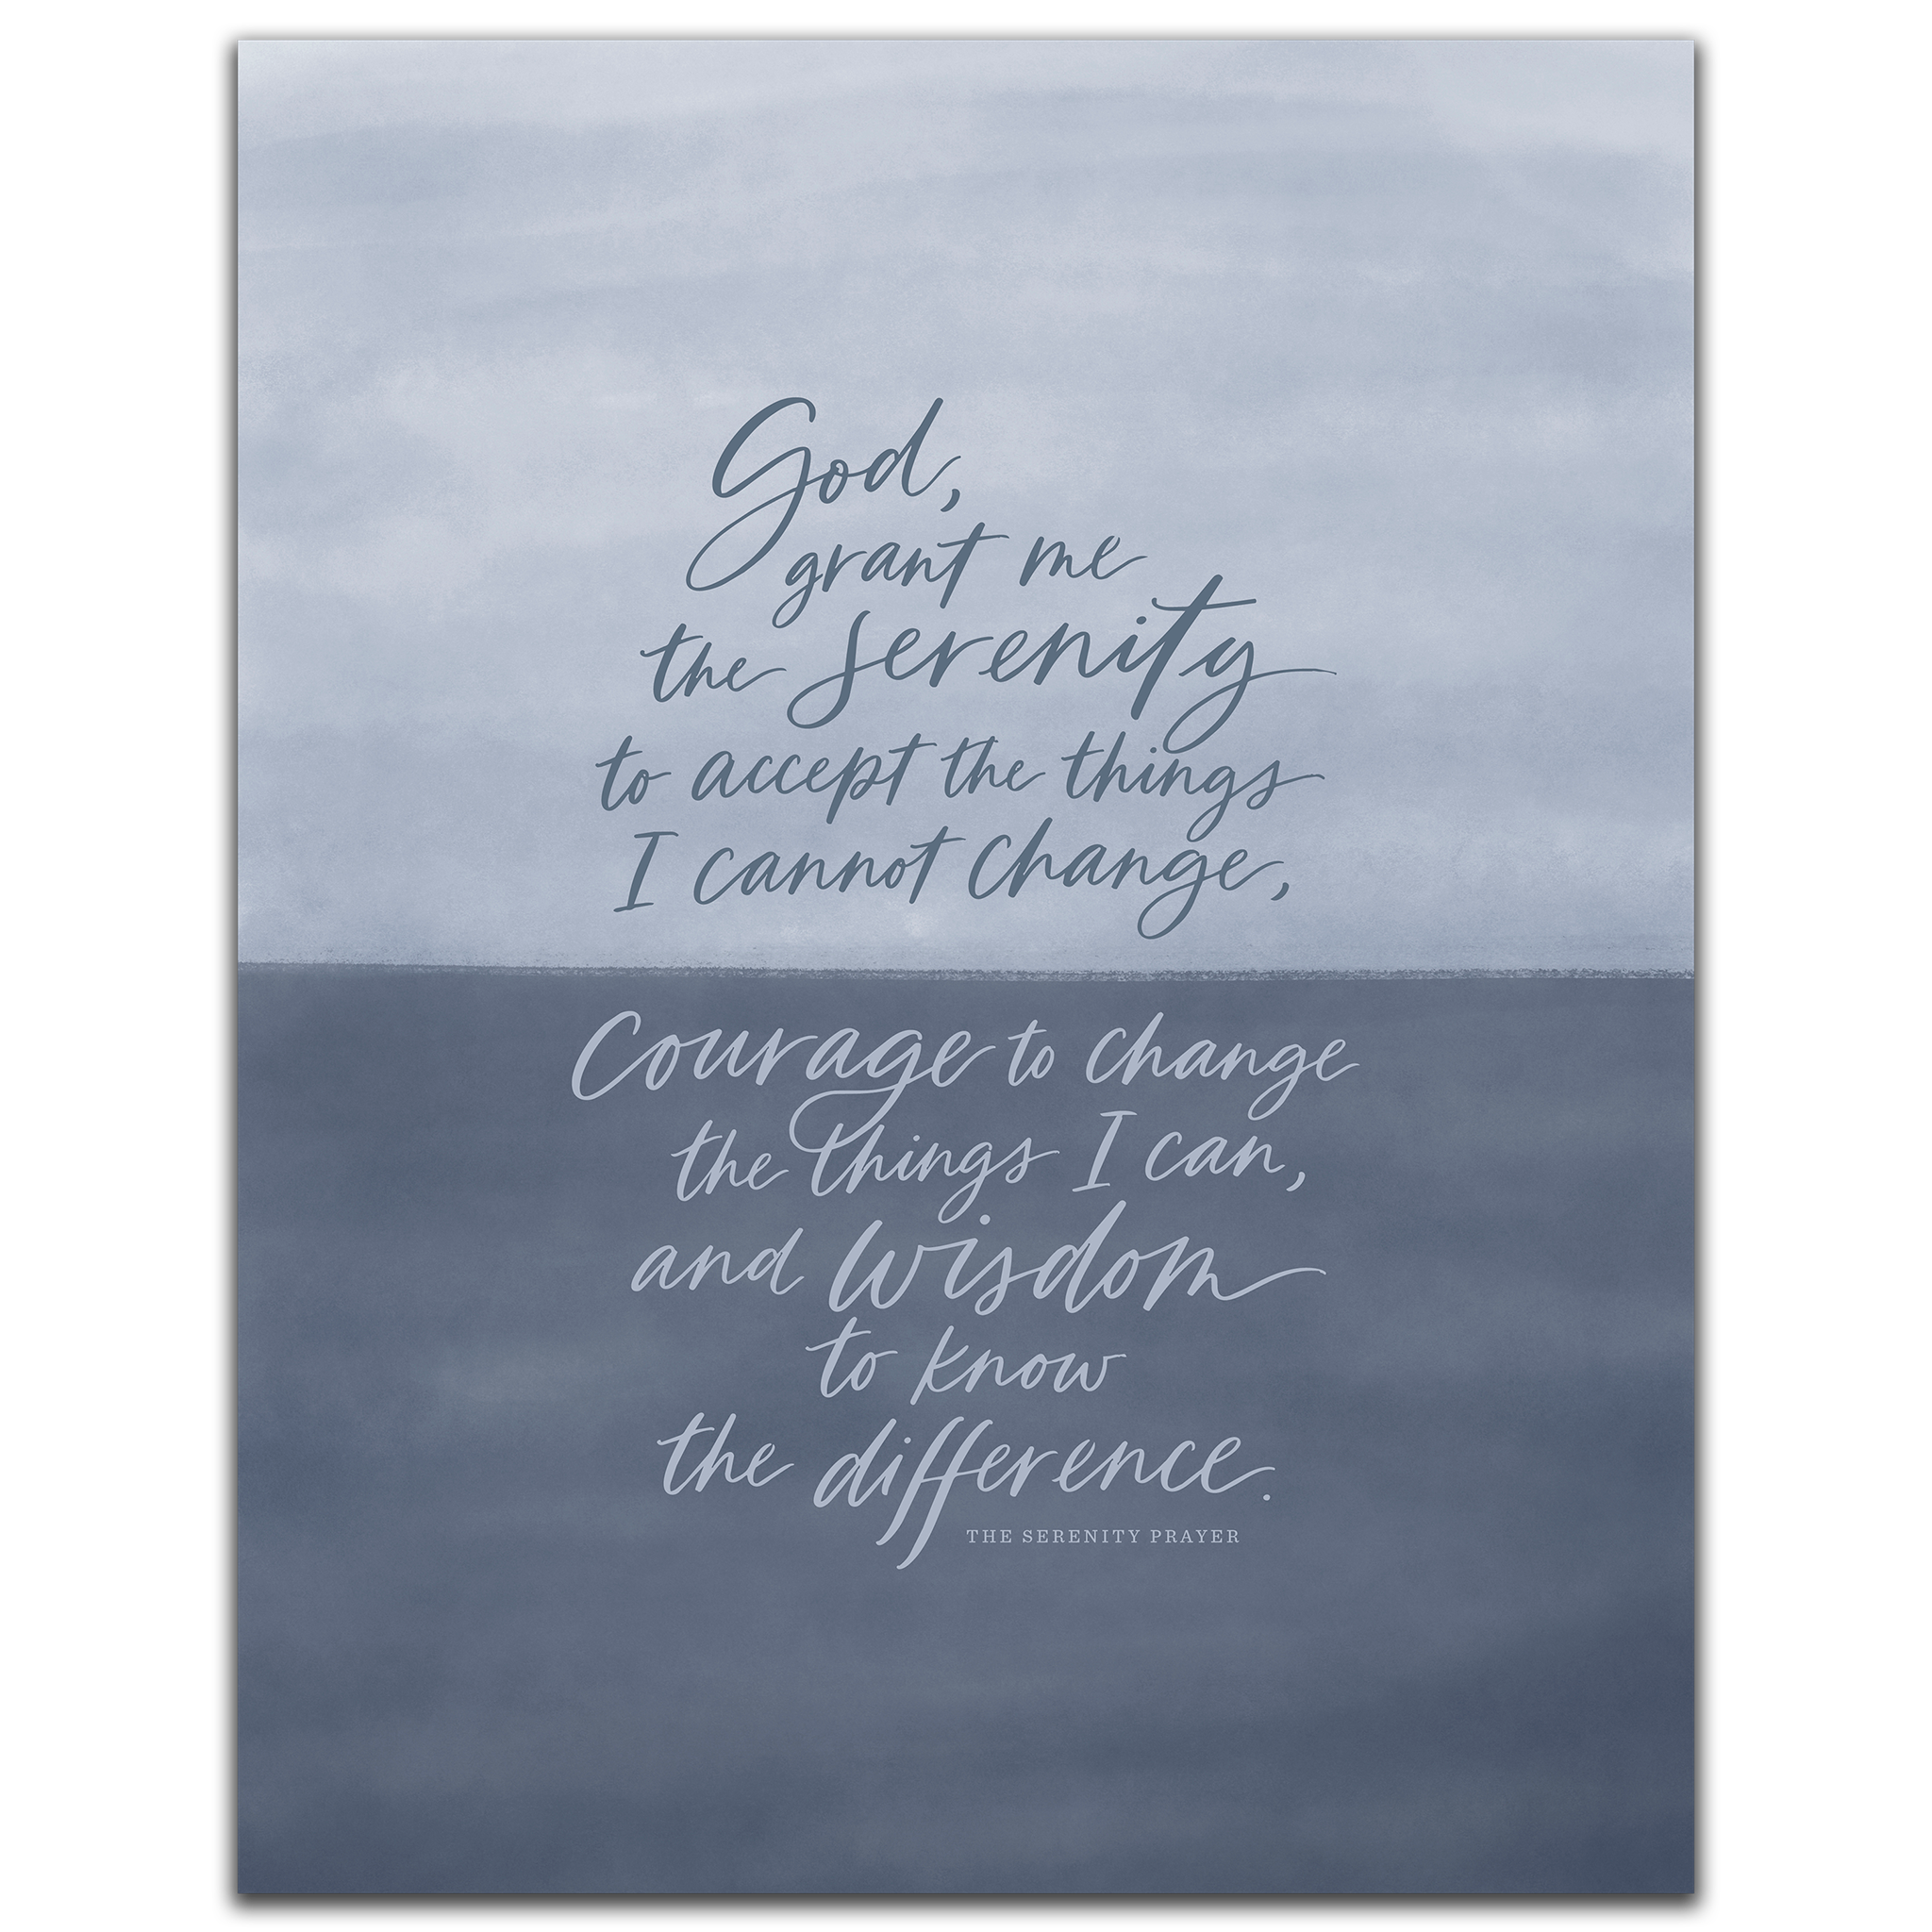 God,
grant me
the serenity
to accept the things
I cannot change,
Courage to change
the things I can,
and wisdom
to know
the difference.
THE SERENITY PRAYER